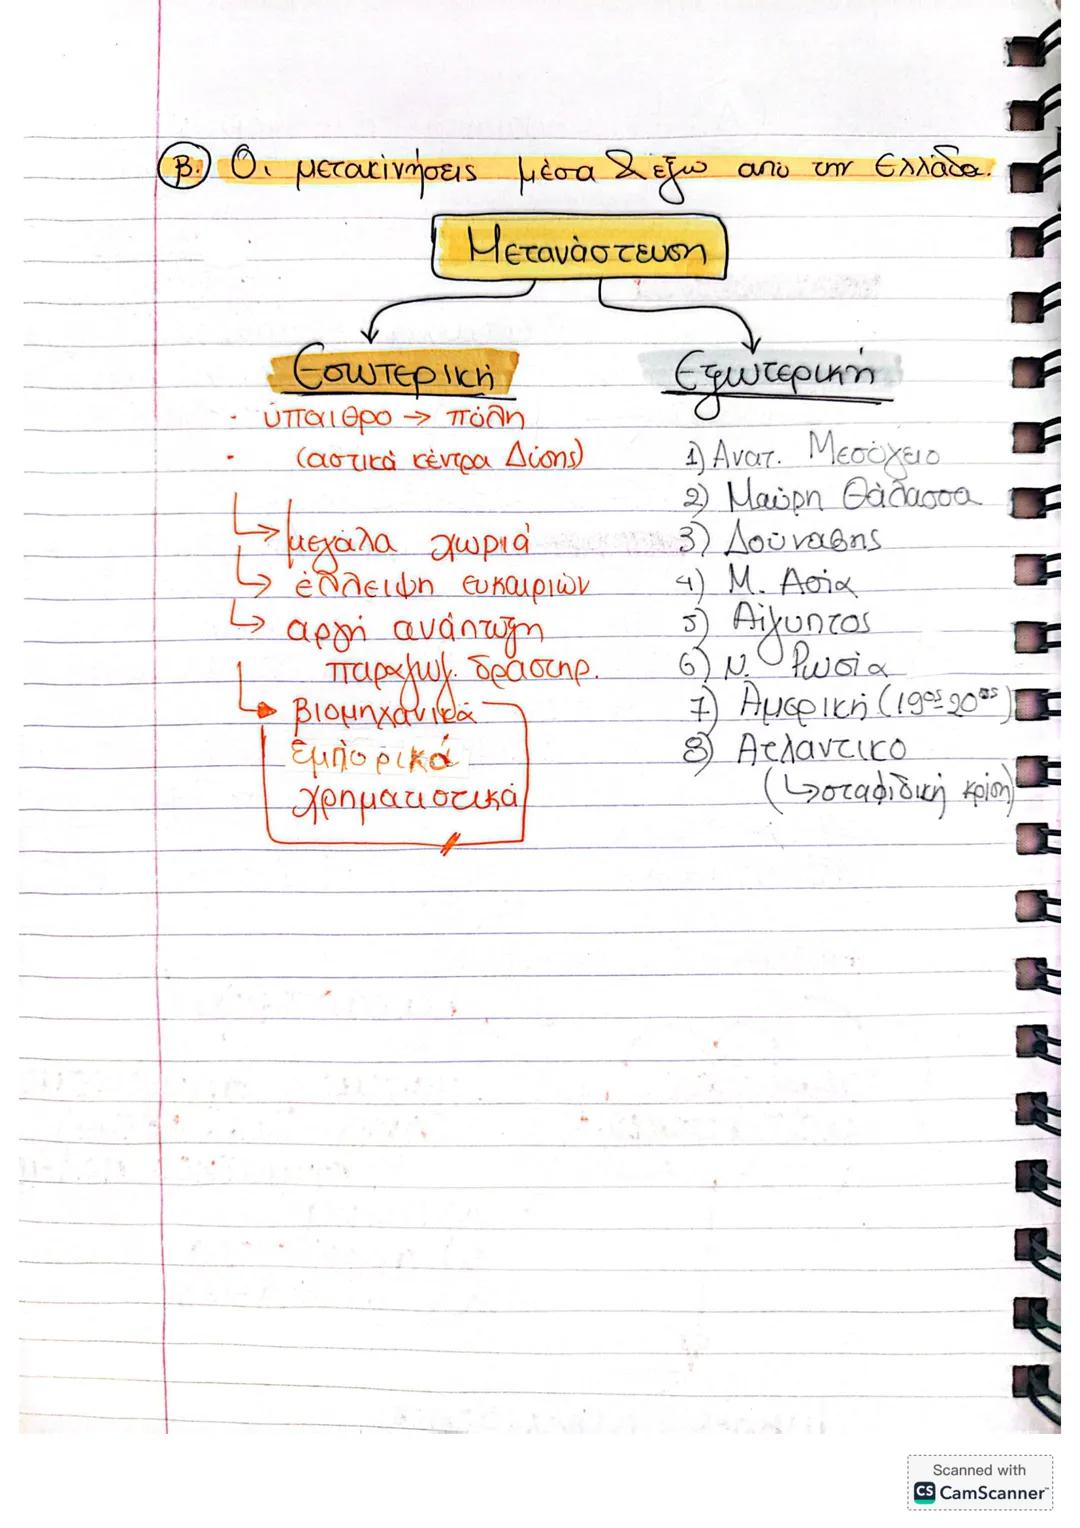 Β. Οι μετακινήσεις μέσα & έξω από την Ελλάδα.
Μετανάστευση
Εσωτερική
· ύπαιθρο → πόλη
· (αστικά κέντρα Δύσης)
↳ μεγάλα χωριά
↳ έλλειψη ευκαιριών
↳ αργή ανάπτυξη
παραγωγ. δραστηρ.
↳ βιομηχανικά
εμπορικά
χρηματιστικά
Εξωτερική
1) Ανατ. Μεσόγειο
2) Μαύρη Θάλασσα
3) Δούναβης
4) Μ. Ασία
5) Αίγυπτος
6) Ν. Ρωσία
7) Αμερική (19ος 20ος)
8) Ατλαντικο
(↳ σταφιδική κρίση)
Scanned with
CS CamScanner